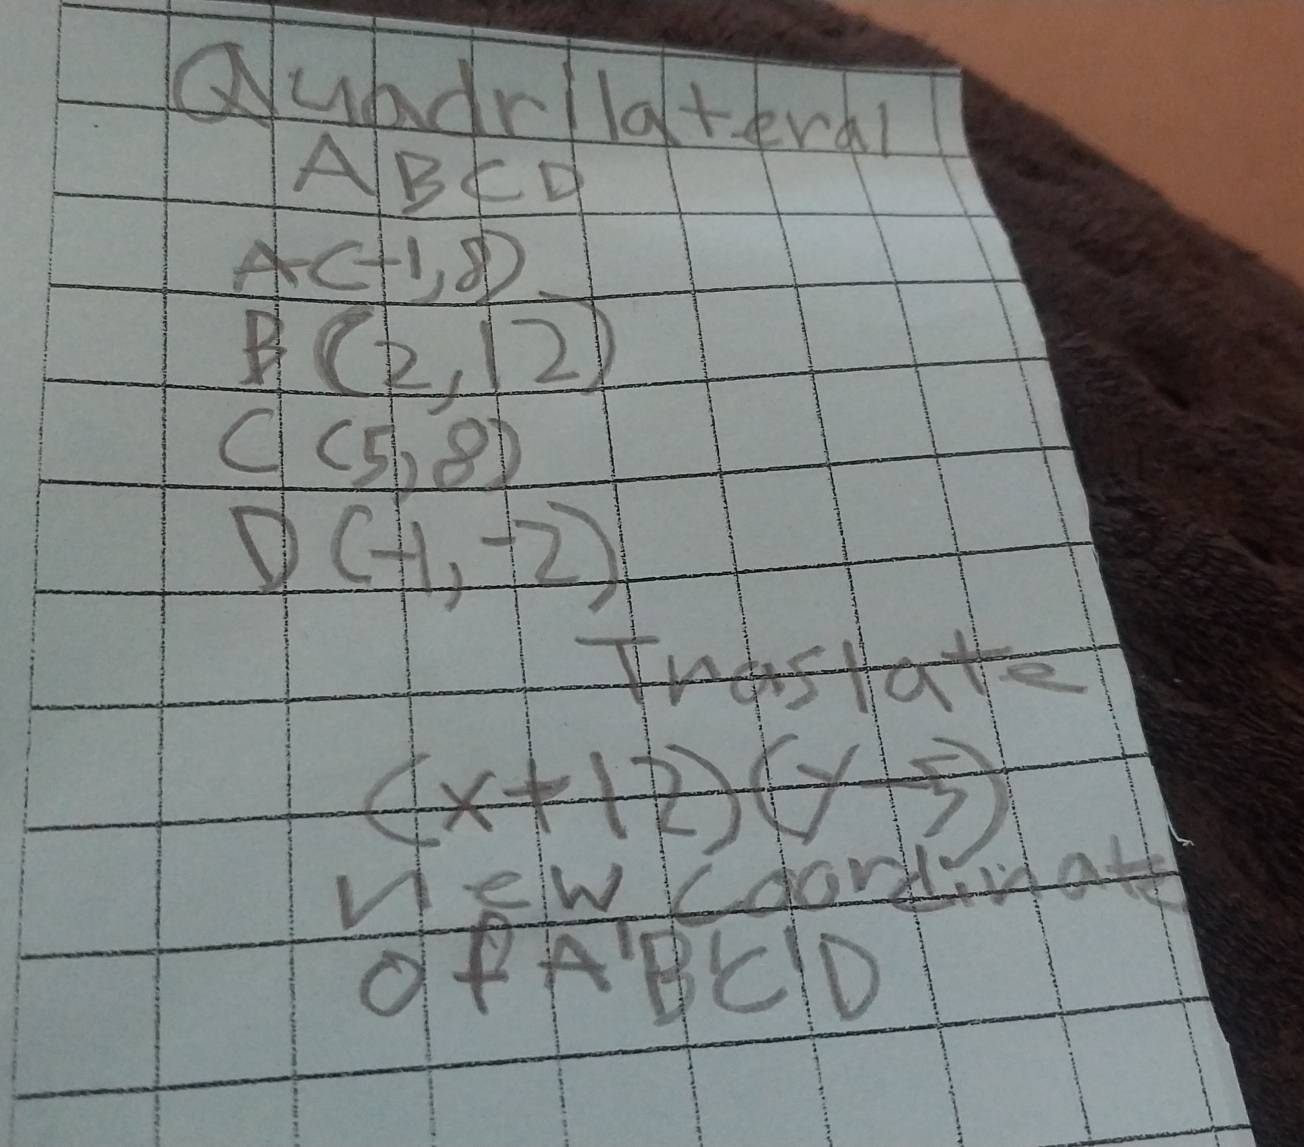 Quadrilateral
ABCD
A(-1,8)
B(2,12)
C(5,8)
D(-1,-2)
Traslate
(x+12)(y-5)
new coordinate
of A'B'C'D